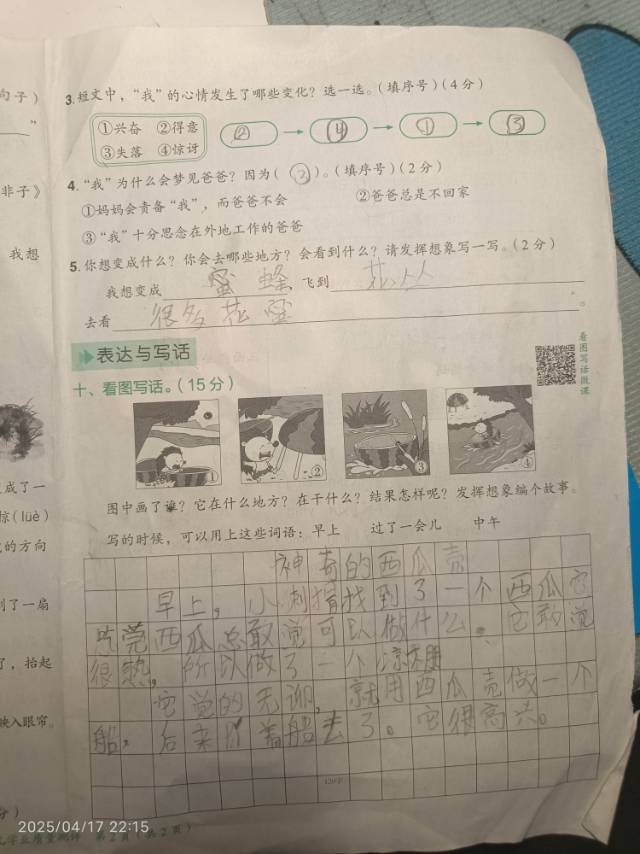 句子)
3.短文中，“我”的心情发生了哪些变化？选一选。(填序号)(4分)
”
①兴奋 ②得意
③失落 ④惊讶
② → ④ → ① → ③
非子》
4.“我”为什么会梦见爸爸？因为( ② )。(填序号)(2分)
①妈妈会责备“我”，而爸爸不会 ②爸爸总是不回家
③“我”十分思念在外地工作的爸爸
我想
5.你想变成什么？你会去哪些地方？会看到什么？请发挥想象写一写。(2分)
我想变成 蜜蜂 飞到 花丛
去看 很多花蜜 。
表达与写话
十、看图写话。(15分)
看图写话微课
① ② ③ ④
成了一
图中画了谁？它在什么地方？在干什么？结果怎样呢？发挥想象编个故事。
惊(lüè)
写的时候，可以用上这些词语：早上 过了一会儿 中午
的方向
神奇的西瓜壳
早上，小刺猬找到了一个西瓜它
到了一扇
吃完西瓜总敢觉可以做什么。它敢觉
了，抬起
很热，所以做了一个凉
它觉的无聊，就用西瓜壳做一个
映入眼帘。
船，后来 着船去了。它很高兴。
120字
分)
2025/04/17 22:15
第2页(共2页)